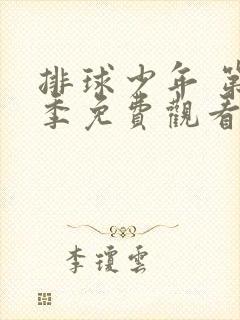 排球少年 第
季免費觀看
李瓊雲